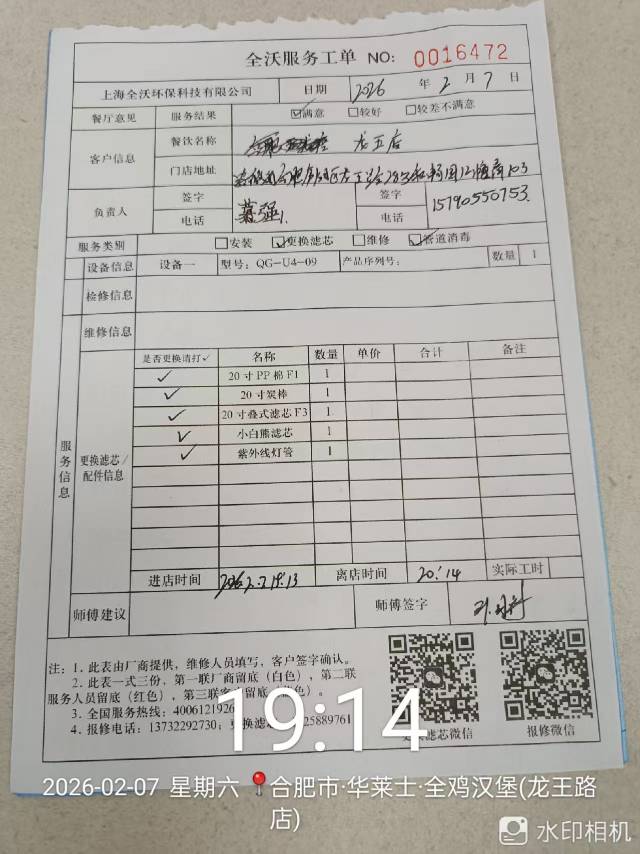 全沃服务工单 NO: 0016472
上海全沃环保科技有限公司 日期 2026 年 2 月 7 日
餐厅意见 服务结果 ☑满意 □较好 □较差不满意
客户信息 餐饮名称 龙王店
门店地址 103
负责人 签字 签字
电话 电话 15790550753
服务类别 □安装 ☑更换滤芯 □维修 ☑管道消毒
设备信息 设备一 型号: QG-U4-09 产品序列号: 数量 1
检修信息
维修信息
服务信息 更换滤芯/配件信息
是否更换请打✓ 名称 数量 单价 合计 备注
✓ 20寸PP棉F1 1
✓ 20寸炭棒 1
✓ 20寸叠式滤芯F3 1
✓ 小白熊滤芯 1
✓ 紫外线灯管 1
进店时间 2026.2.7 19:13 离店时间 20:14 实际工时
师傅建议 师傅签字
注: 1. 此表由厂商提供, 维修人员填写, 客户签字确认。
2. 此表一式三份, 第一联厂商留底(白色), 第二联
服务人员留底(红色), 第三联
3. 全国服务热线: 4006121926
4. 报修电话: 13732292730; 更换滤芯 25889761
更换滤芯微信 报修微信
19:14
2026-02-07 星期六 合肥市·华莱士·全鸡汉堡(龙王路
店)
水印相机